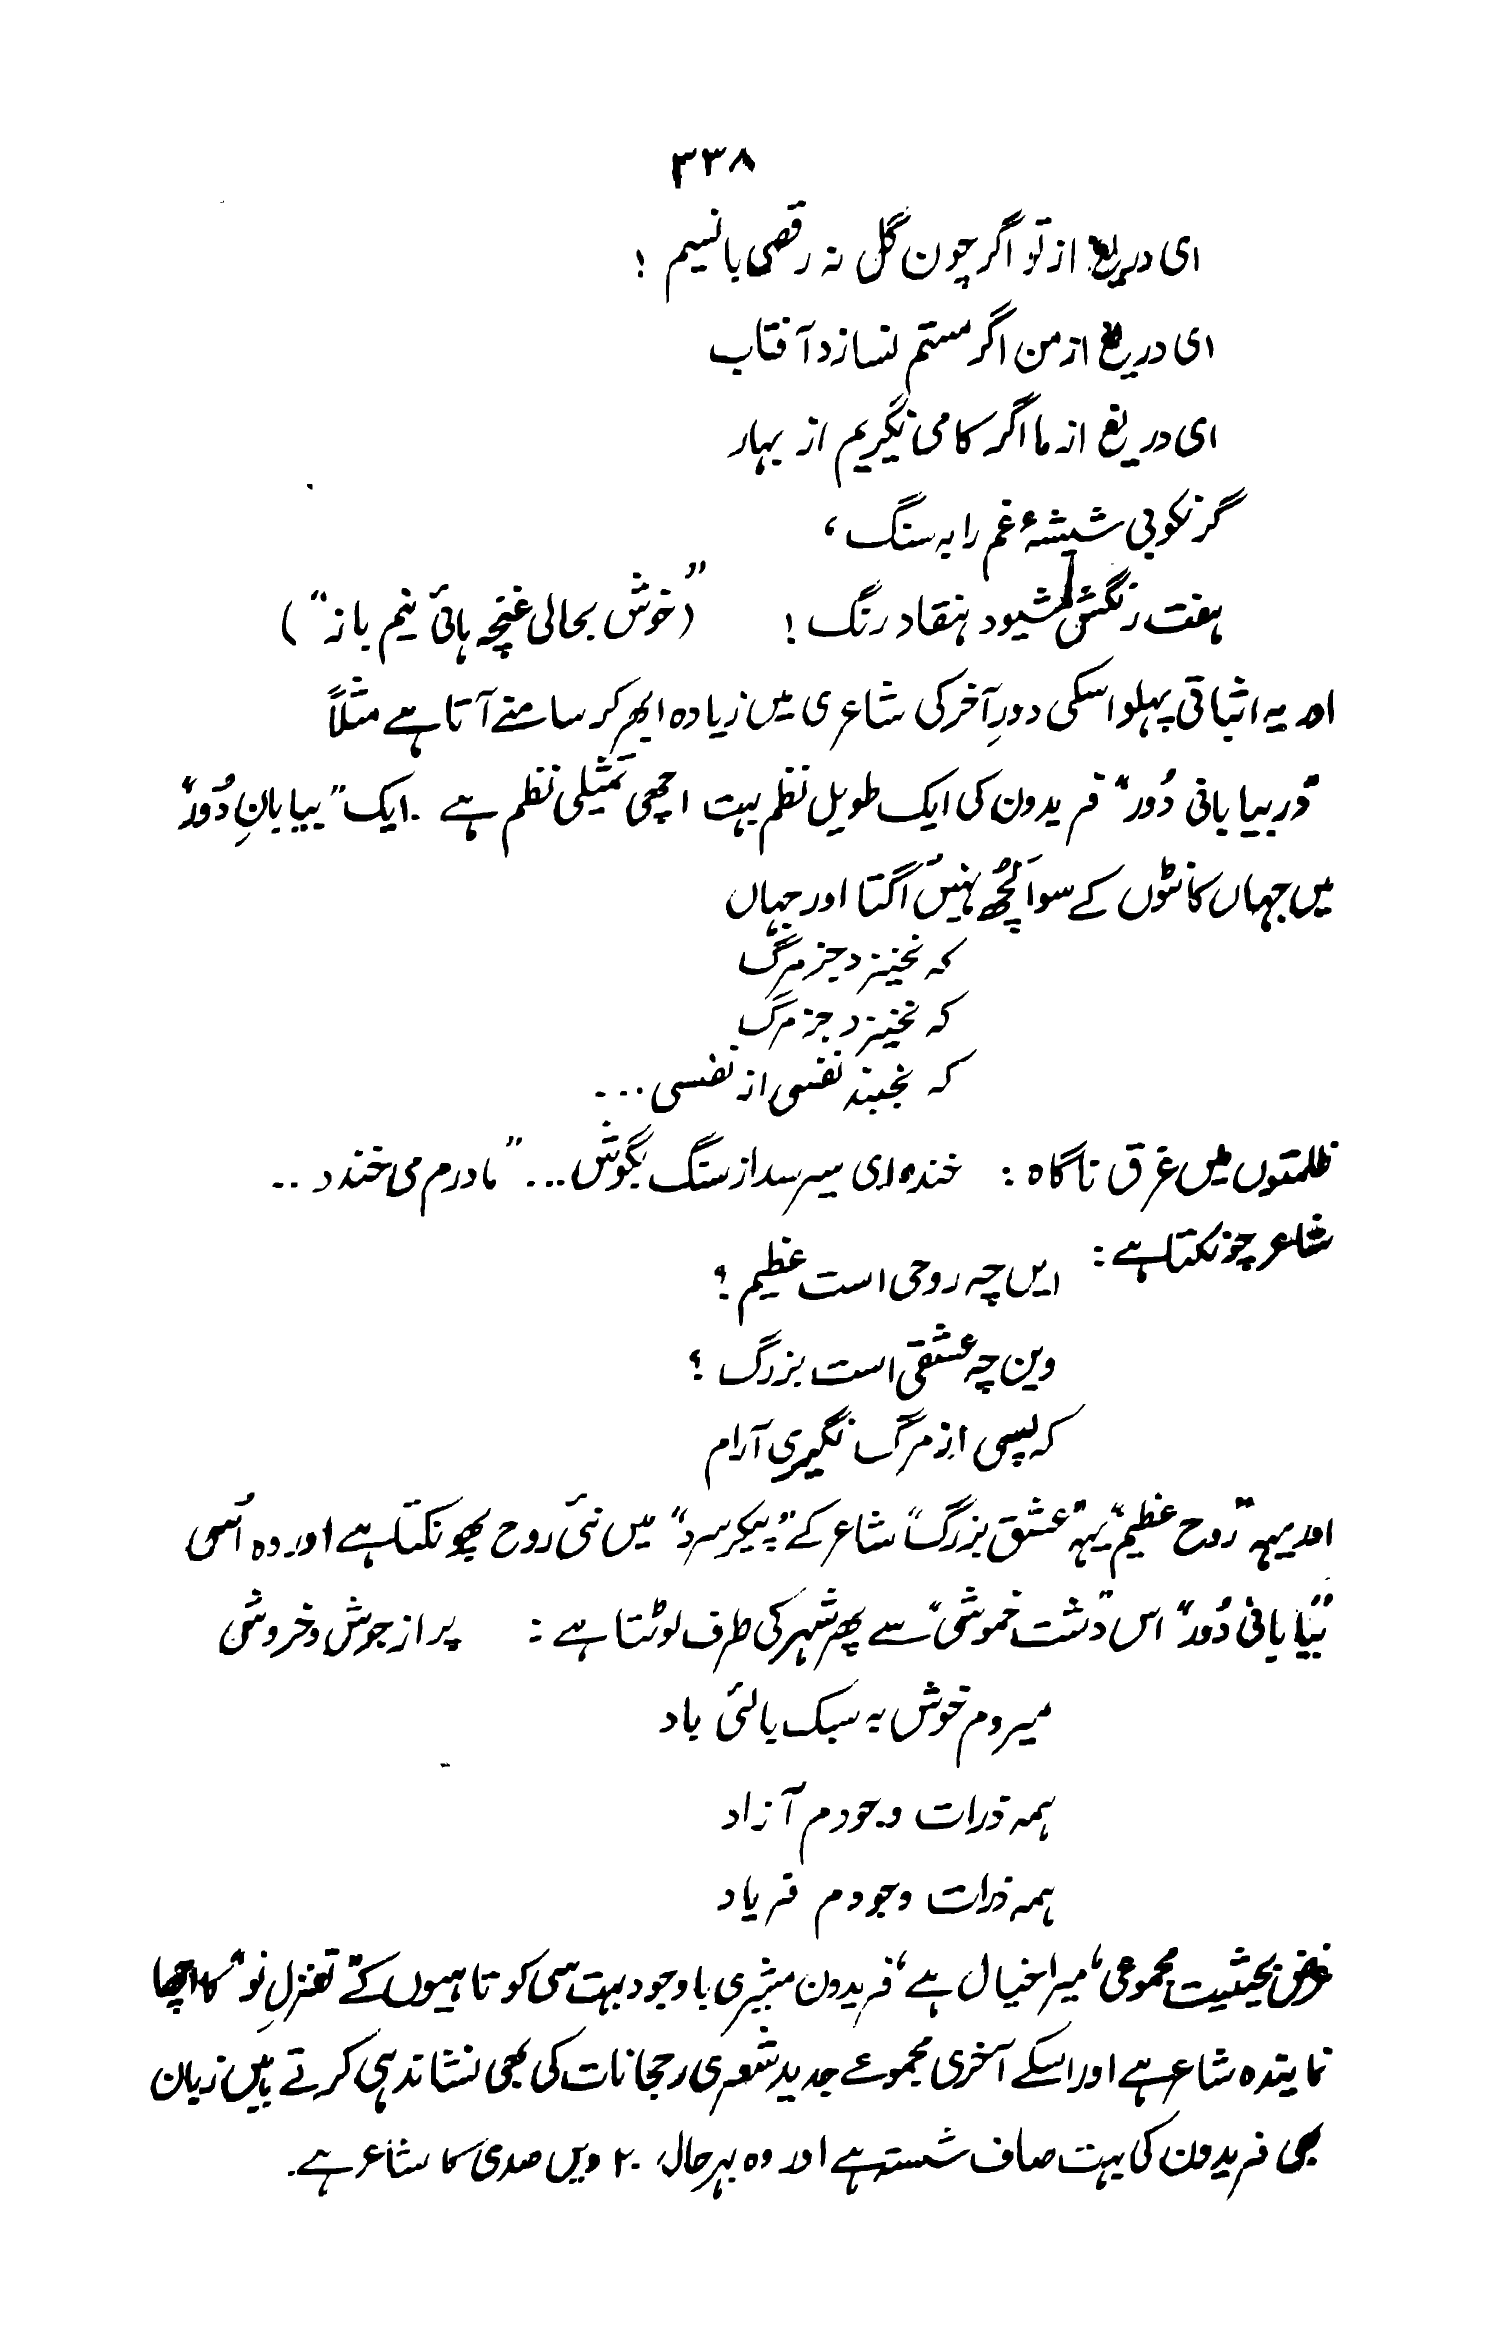 ۳۳۸
ای دریغ از تو اگر چون گل نہ رقصی با نسیم !
ای دریغ از من اگر مستم نسازد آفتاب
ای دریغ از ما اگر کامی نگیریم از بہار
گر نکوبی شیشۂ غم را بہ سنگ ،
ہفت رنگش میشود ہفتاد رنگ ! (”خوش بحالی غنچہ ہائ نیم باز“)
اور یہ اثباتی پہلو اسکی دورِ آخر کی شاعری میں زیادہ ابھر کر سامنے آتا ہے مثلاً
”در بیابانی دُور“ فریدون کی ایک طویل نظم بہت اچھی تمثیلی نظم ہے ۔ ایک ”بیابانِ دُور“
میں جہاں کانٹوں کے سوا کچھ نہیں اُگتا اور جہاں
کہ نخیزد جز مرگ
کہ نخیزد جز مرگ
کہ نجنبد نفسی از نفسی ...
ظلمتوں میں غرق ناگاہ : خندہ ای میرسد از سنگ بگوش ... ”مادرم می خندد ..
شاعر چونکتا ہے :
ایں چہ روحی است عظیم ؟
وین چہ عشقی است بزرگ ؟
کہ پسی از مرگ نگیری آرام
اور یہہ ”روح عظیم“ یہہ ”عشق بزرگ“ شاعر کے ”پیکر سرد“ میں نئی روح پھونکتا ہے اور وہ اُسی
”بیابانی دُور“ اس ”دشت خموشی“ سے پھر شہر کی طرف لوٹتا ہے : پر از جوش و خروش
میروم خوش بہ سبک بالئ باد
ہمہ ذرات وجودم آزاد
ہمہ ذرات وجودم فریاد
غرض بحیثیت مجموعی ، میرا خیال ہے ، فریدون مشیری باوجود بہت سی کوتاہیوں کے ”تغزلِ نو“ کا اچھا
نمایندہ شاعر ہے اور اسکے آخری مجموعے جدید شعری رحجانات کی بھی نشاندہی کرتے ہیں زبان
بھی فریدون کی بہت صاف شستہ ہے اور وہ بہرحال ، ۲۰ ویں صدی کا شاعر ہے ۔